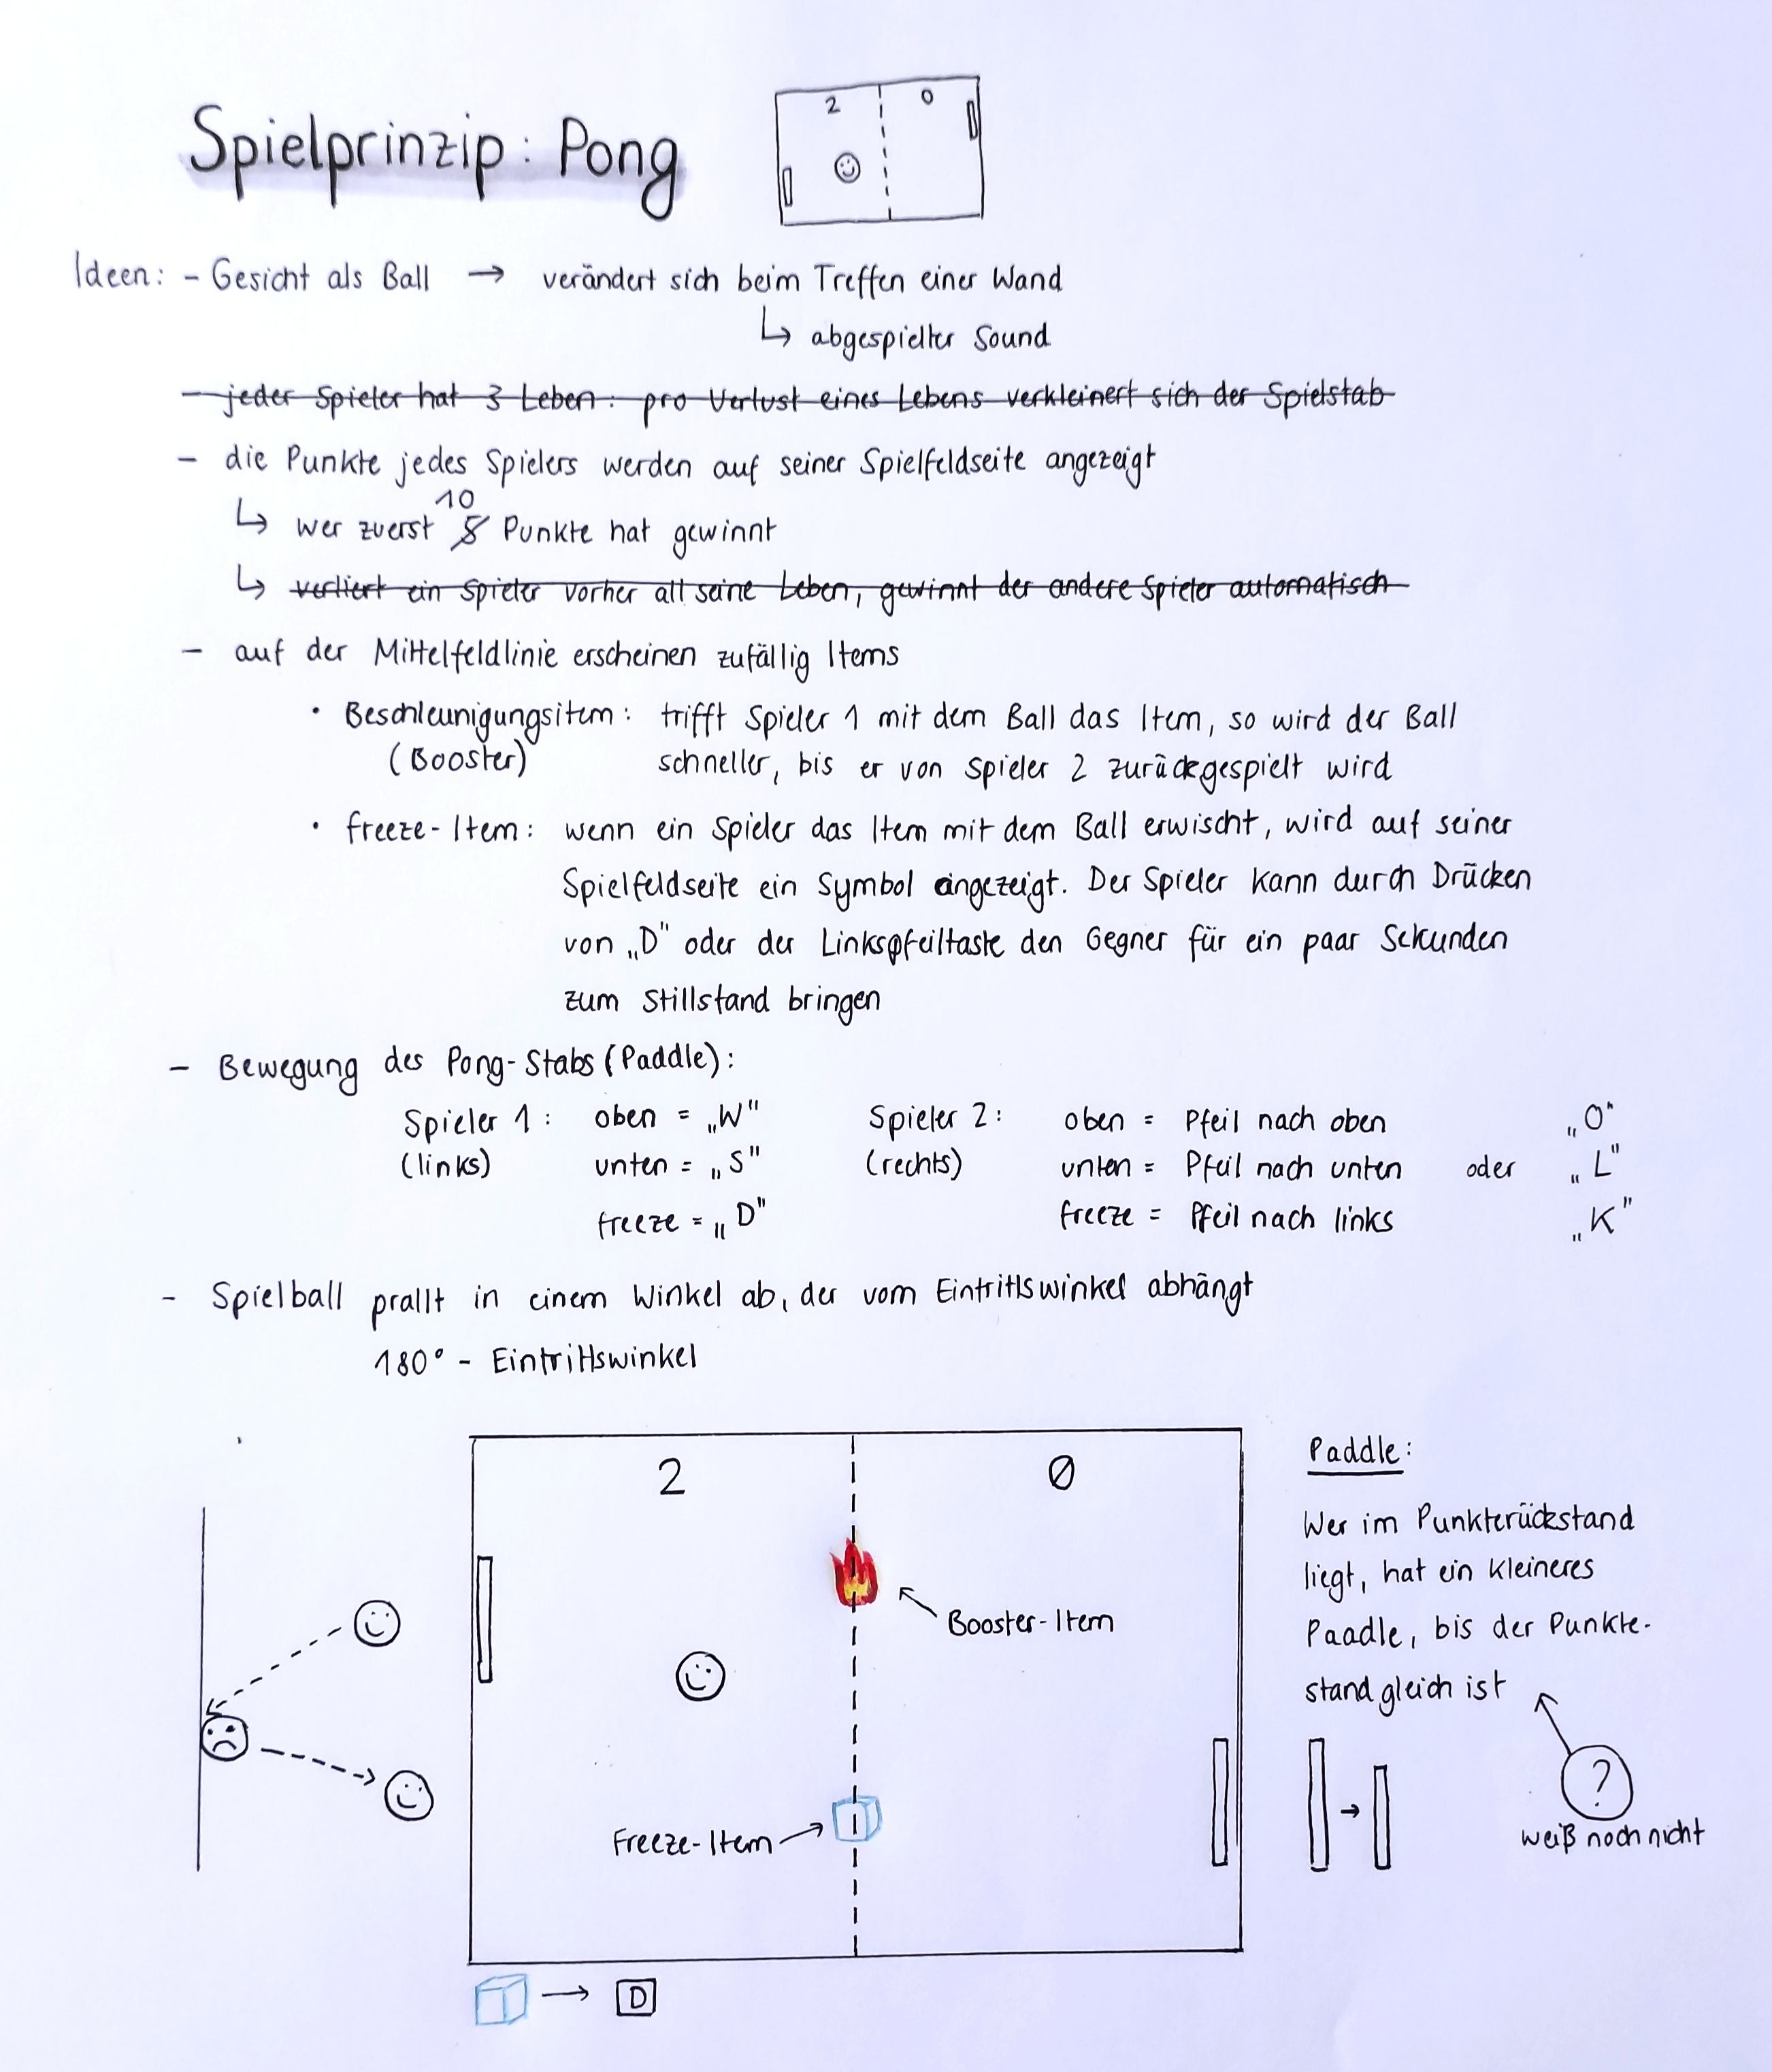 Spielprinzip: Pong
2 0
Ideen: - Gesicht als Ball → verändert sich beim Treffen einer Wand
↳ abgespielter Sound
- jeder Spieler hat 3 Leben: pro Verlust eines Lebens verkleinert sich der Spielstab
- die Punkte jedes Spielers werden auf seiner Spielfeldseite angezeigt
10
↳ wer zuerst 5 Punkte hat gewinnt
↳ verliert ein Spieler vorher all seine Leben, gewinnt der andere Spieler automatisch
- auf der Mittelfeldlinie erscheinen zufällig Items
• Beschleunigungsitem: trifft Spieler 1 mit dem Ball das Item, so wird der Ball
(Booster) schneller, bis er von Spieler 2 zurückgespielt wird
• freeze-Item: wenn ein Spieler das Item mit dem Ball erwischt, wird auf seiner
Spielfeldseite ein Symbol angezeigt. Der Spieler kann durch Drücken
von „D" oder der Linkspfeiltaste den Gegner für ein paar Sekunden
zum Stillstand bringen
- Bewegung des Pong-Stabs (Paddle):
Spieler 1: oben = „W" Spieler 2: oben = Pfeil nach oben „O"
(links) unten = „S" (rechts) unten = Pfeil nach unten oder „L"
freeze = „D" freeze = Pfeil nach links „K"
- Spielball prallt in einem Winkel ab, der vom Eintrittswinkel abhängt
180° - Eintrittswinkel
2 0
Booster-Item
Freeze-Item
D
Paddle:
Wer im Punkterückstand
liegt, hat ein kleineres
Paadle, bis der Punkte-
stand gleich ist
?
weiß noch nicht